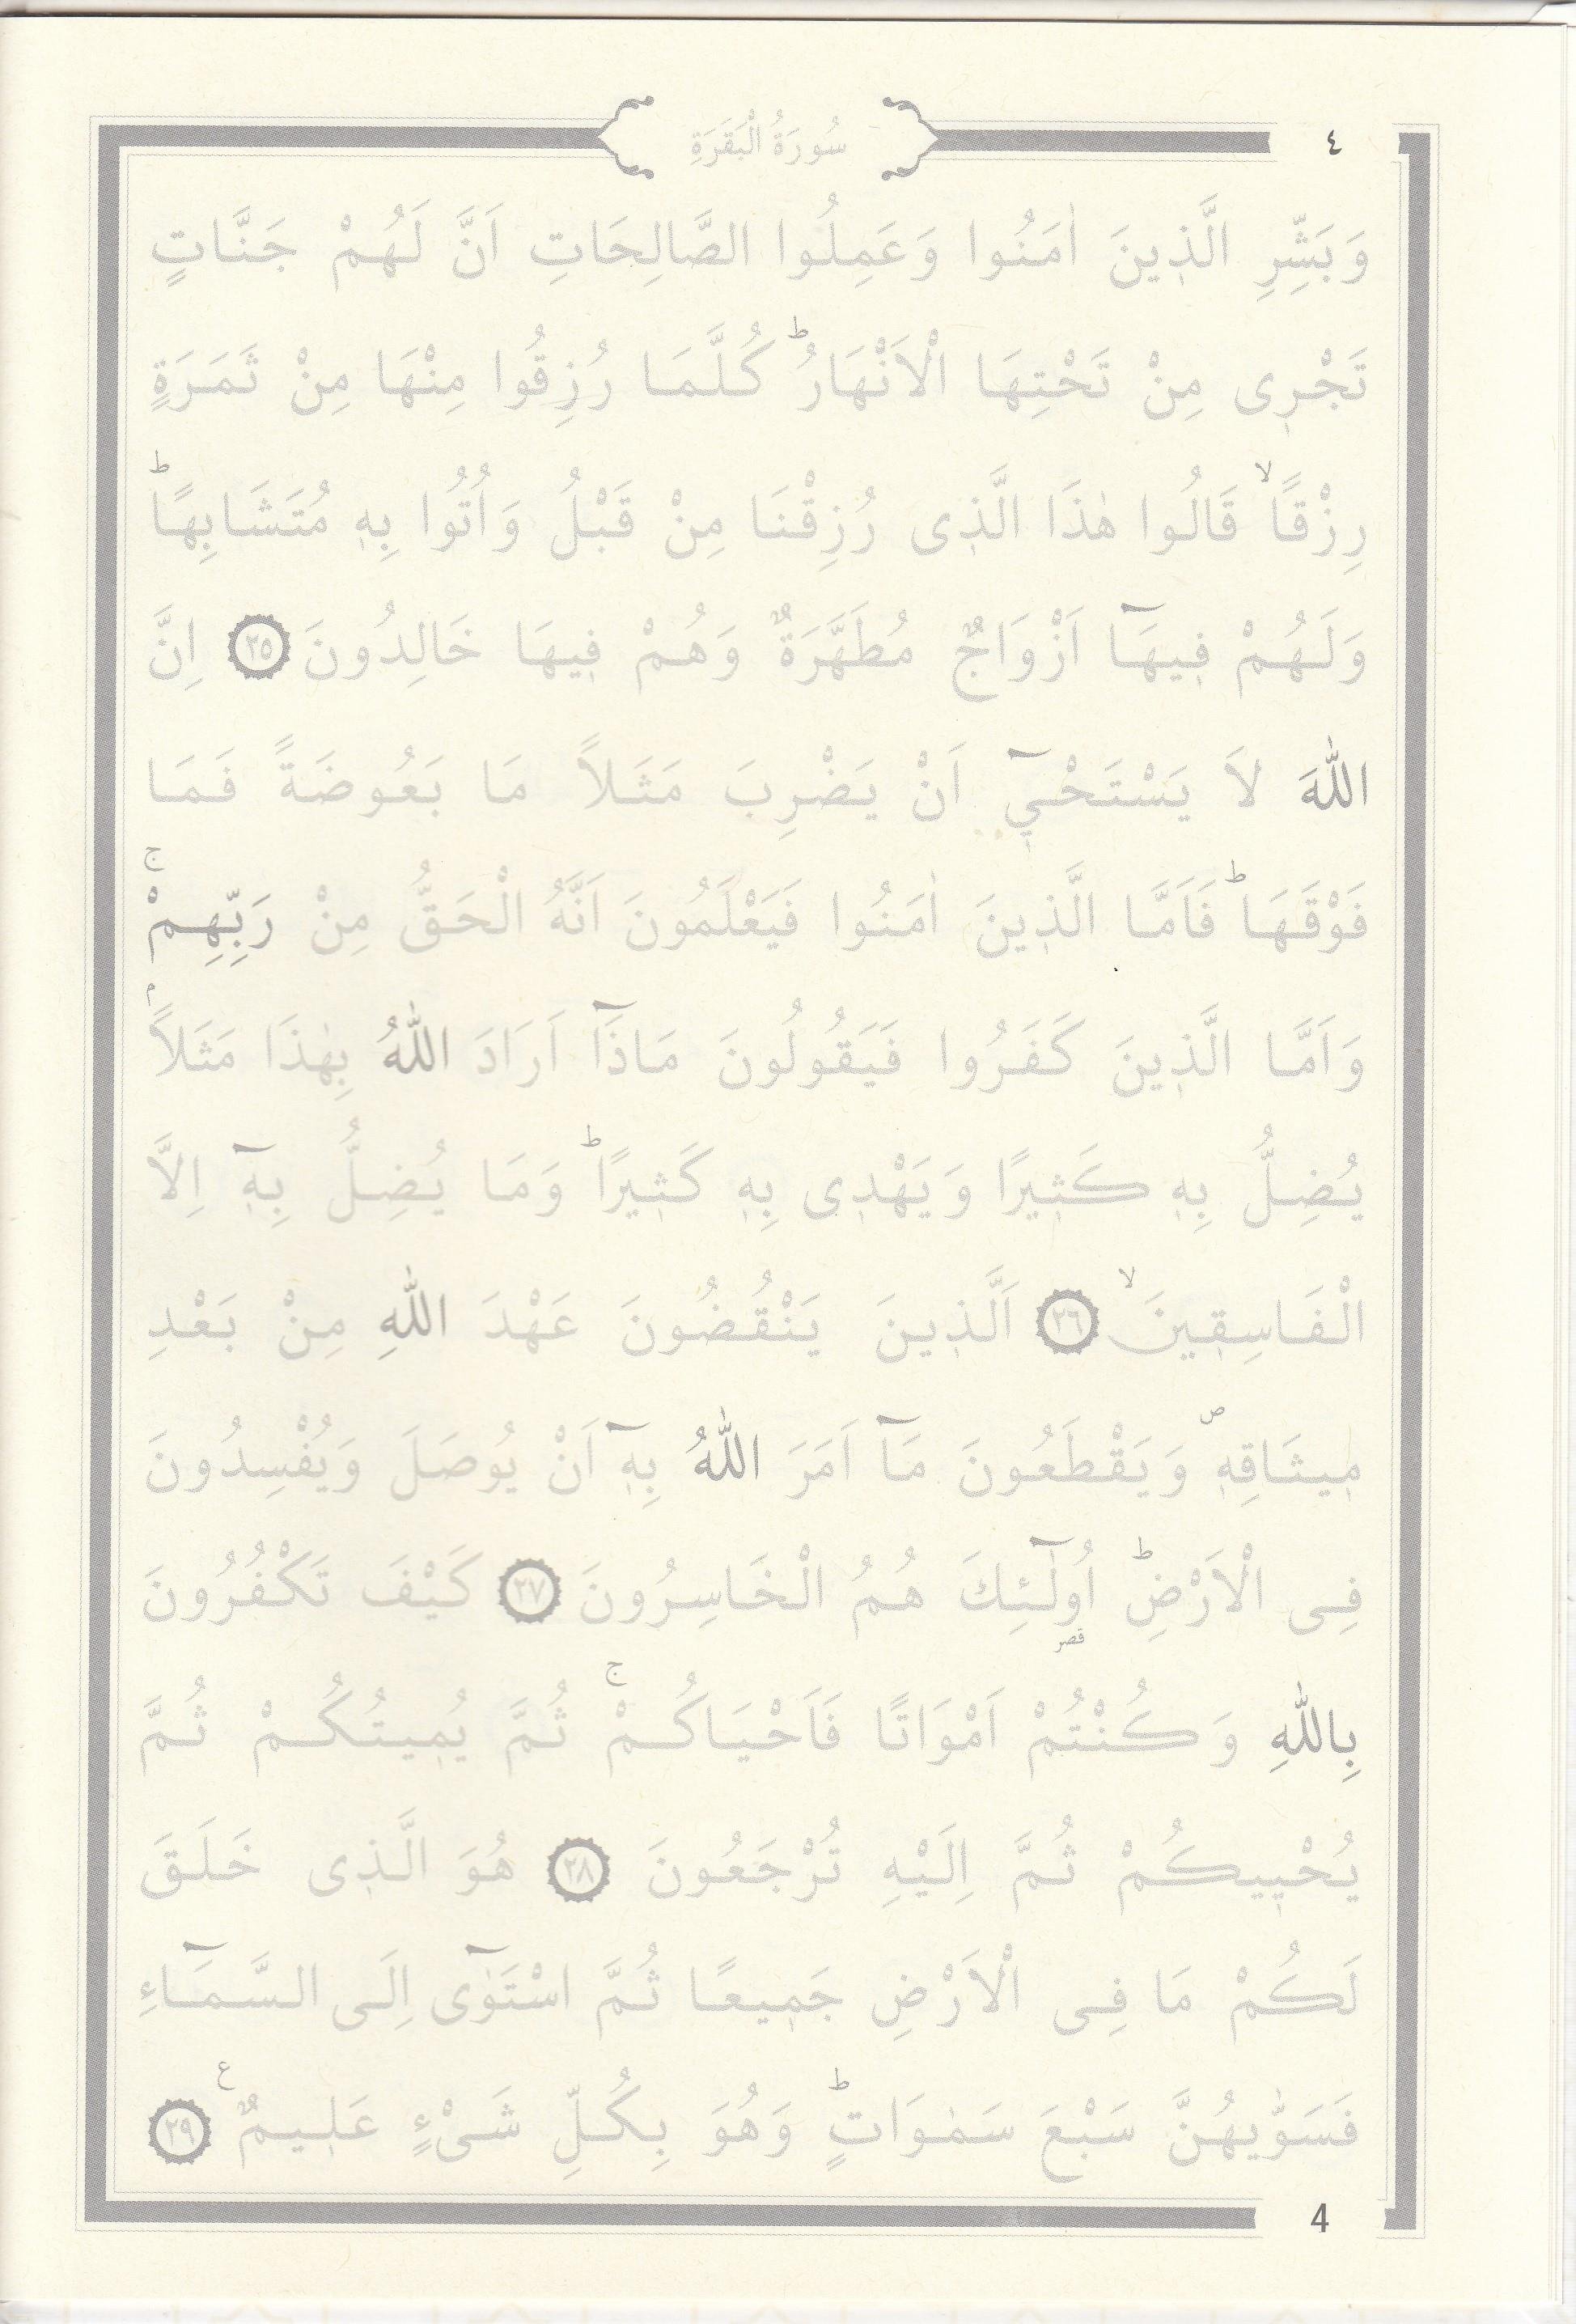 ٤
سُورَةُ الْبَقَرَةِ
وَبَشِّرِ الَّذ۪ينَ اٰمَنُوا وَعَمِلُوا الصَّالِحَاتِ اَنَّ لَهُمْ جَنَّاتٍ
تَجْر۪ى مِنْ تَحْتِهَا الْاَنْهَارُۜ كُلَّمَا رُزِقُوا مِنْهَا مِنْ ثَمَرَةٍ
رِزْقًاۙ قَالُوا هٰذَا الَّذ۪ى رُزِقْنَا مِنْ قَبْلُ وَاُتُوا بِه۪ مُتَشَابِهًاۜ
وَلَهُمْ ف۪يهَٓا اَزْوَاجٌ مُطَهَّرَةٌ وَهُمْ ف۪يهَا خَالِدُونَ ﴿٢٥﴾ اِنَّ
اللّٰهَ لَا يَسْتَحْي۪ٓ اَنْ يَضْرِبَ مَثَلًا مَا بَعُوضَةً فَمَا
فَوْقَهَاۜ فَاَمَّا الَّذ۪ينَ اٰمَنُوا فَيَعْلَمُونَ اَنَّهُ الْحَقُّ مِنْ رَبِّهِمْۚ
وَاَمَّا الَّذ۪ينَ كَفَرُوا فَيَقُولُونَ مَاذَٓا اَرَادَ اللّٰهُ بِهٰذَا مَثَلًاۢ
يُضِلُّ بِه۪ كَث۪يرًا وَيَهْد۪ى بِه۪ كَث۪يرًاۜ وَمَا يُضِلُّ بِه۪ٓ اِلَّا
الْفَاسِق۪ينَۙ ﴿٢٦﴾ اَلَّذ۪ينَ يَنْقُضُونَ عَهْدَ اللّٰهِ مِنْ بَعْدِ
م۪يثَاقِه۪ۖ وَيَقْطَعُونَ مَٓا اَمَرَ اللّٰهُ بِه۪ٓ اَنْ يُوصَلَ وَيُفْسِدُونَ
فِى الْاَرْضِۜ اُولٰٓئِكَ هُمُ الْخَاسِرُونَ ﴿٢٧﴾ كَيْفَ تَكْفُرُونَ
قصر
بِاللّٰهِ وَكُنْتُمْ اَمْوَاتًا فَاَحْيَاكُمْۚ ثُمَّ يُم۪يتُكُمْ ثُمَّ
يُحْي۪يكُمْ ثُمَّ اِلَيْهِ تُرْجَعُونَ ﴿٢٨﴾ هُوَ الَّذ۪ى خَلَقَ
لَكُمْ مَا فِى الْاَرْضِ جَم۪يعًا ثُمَّ اسْتَوٰٓى اِلَى السَّمَٓاءِ
فَسَوّٰيهُنَّ سَبْعَ سَمٰوَاتٍۜ وَهُوَ بِكُلِّ شَىْءٍ عَل۪يمٌ ع ﴿٢٩﴾
4